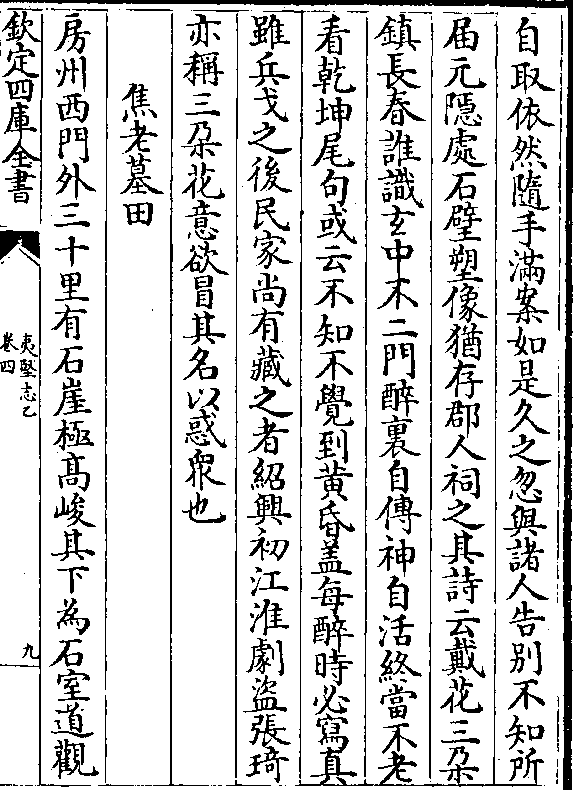 自取依然隨手滿案如是久之忽與諸人告别不知所
届元隠處石壁塑像猶存郡人祠之其詩云戴花三朶
鎮長春誰識玄中不二門醉裏自傳神自活終當不老
看乾坤尾句或云不知不覺到黄昏盖每醉時必寫真
雖兵戈之後民家尚有藏之者紹興初江淮劇盜張琦
亦稱三朶花意欲冒其名以惑衆也
焦老墓田
房州西門外三十里有石崖極高峻其下為石室道觀
欽定四庫全書
夷堅志乙
卷四
九